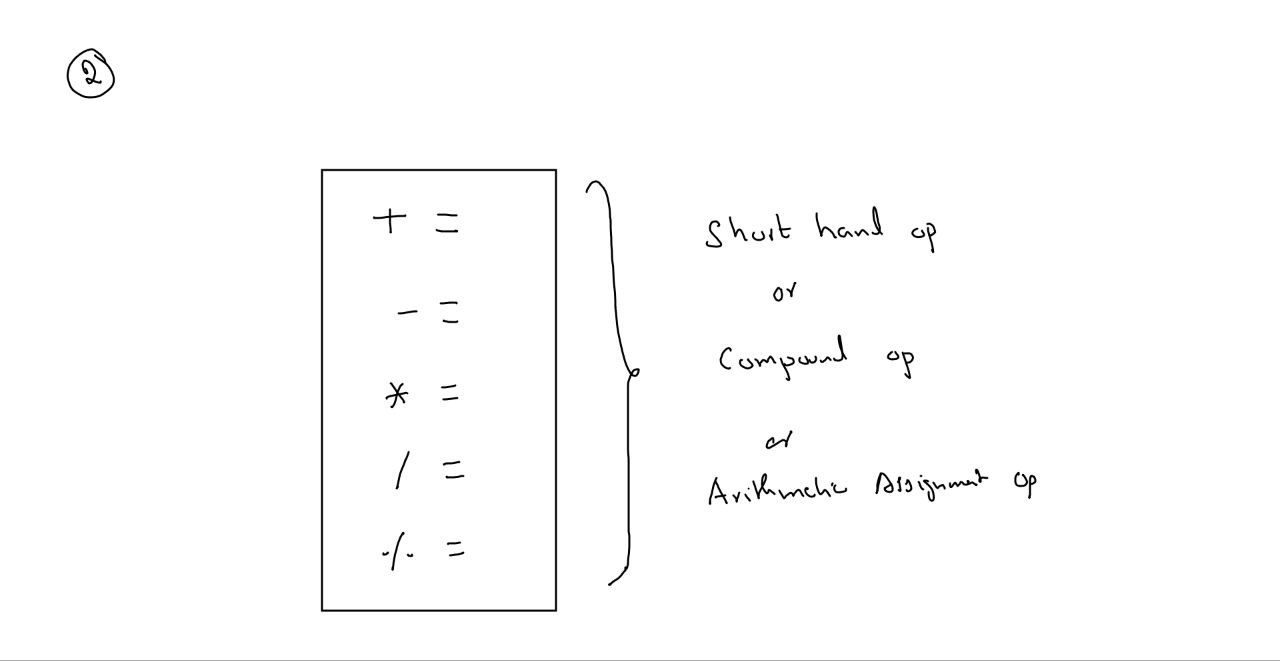 2
+ =
- =
* =
/ =
% =
Short hand op
or
Compound op
or
Arithmetic Assignment op